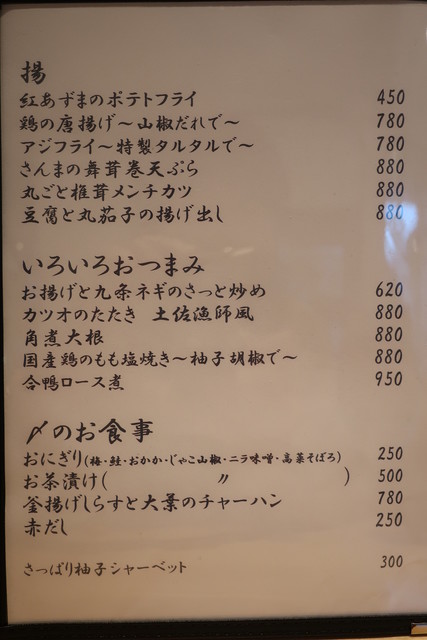 揚
紅あずまのポテトフライ 450
鶏の唐揚げ〜山椒だれで〜 780
アジフライ〜特製タルタルで〜 780
さんまの舞茸巻天ぷら 880
丸ごと椎茸メンチカツ 880
豆腐と丸茄子の揚げ出し 880
いろいろおつまみ
お揚げと九条ネギのさっと炒め 620
カツオのたたき 土佐漁師風 880
角煮大根 880
国産鶏のもも塩焼き〜柚子胡椒で〜 880
合鴨ロース煮 950
〆のお食事
おにぎり(梅・鮭・おかか・じゃこ山椒・ニラ味噌・高菜そぼろ) 250
お茶漬け( 〃 ) 500
釜揚げしらすと大葉のチャーハン 780
赤だし 250
さっぱり柚子シャーベット 300